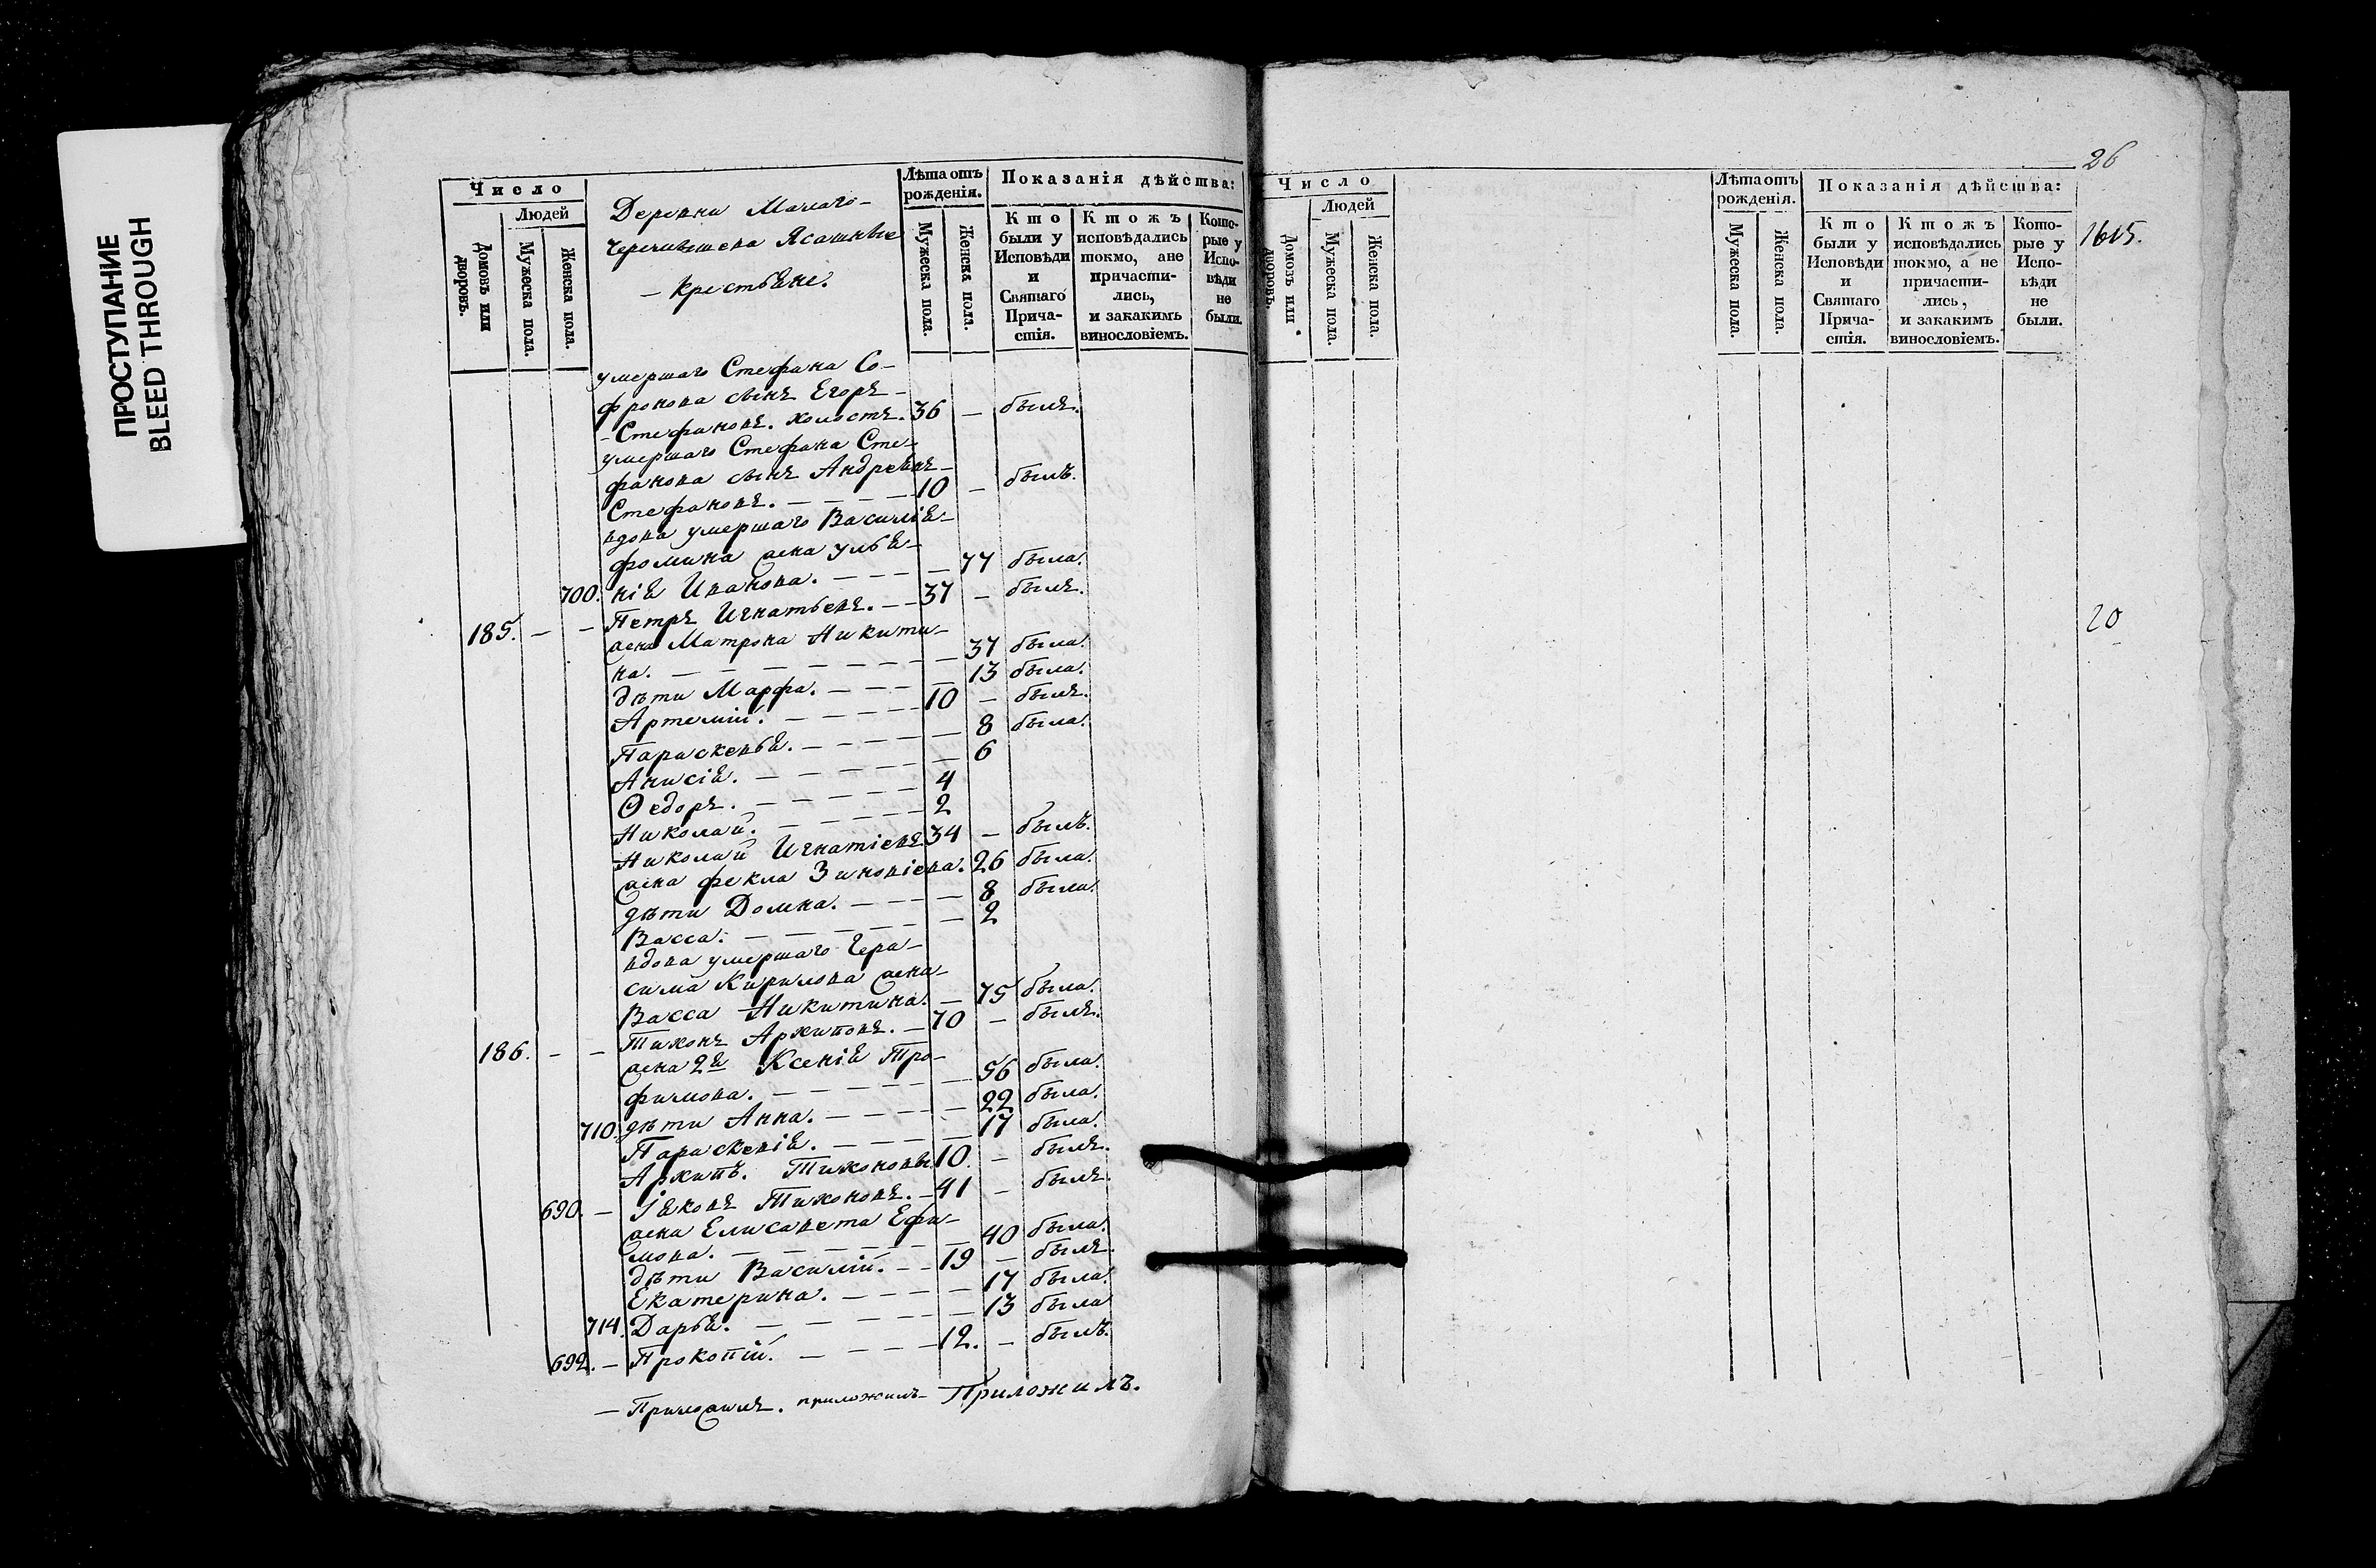 ПРОСТУПАНИЕ
BLEED THROUGH
Число
Людей
Домовъ или дворовъ.
Мужеска пола.
Женска пола.
Деревни Малаго-
Черемшена Ясашные
- крестьяне.
Лѣта отъ рожденія.
Мужеска пола.
Женска пола.
Показанія дѣйства:
Кто были у Исповѣди и Святаго Причастія.
Ктожъ исповѣдались токмо, ане причастились, и закакимъ винословіемъ.
Которые у Исповѣди не были.
умершаго Стефана Со-
фронова сынъ Егоръ-
-Стефановъ. холостъ. 36 — былъ.
умершаго Стефана Сте-
фанова сынъ Андрей
Стефановъ. — — — — 10 — былъ.
вдова умершаго Василія-
Фомина жена Улья-
700. нія Иванова. — — — — 77 была.
185. — — Петръ Игнатьевъ. — — 37 — былъ.
жена Матрона Никити-
на. — — — — — — — 37 была.
дѣти Марфа. — — — — 13 была.
Артемій. — — — — 10 — былъ.
Параскевья. — — — — — 8 была.
Анисія. — — — — — — 6
Ѳедоръ. — — — — — 4
Николай. — — — — — 2
Николай Игнатіевъ 34 — былъ.
жена Фекла Зиновіева. 26 была.
дѣти Домна. — — — — 8 была.
Васса. — — — — — — 2
вдова умершаго Гера-
сима Кирилова жена
Васса Никитина. — 75 была.
186. — — Тихонъ Архиповъ. — 70 — былъ.
жена 2я Ксенія Тро-
фимова. — — — — — — 56 была.
710. дѣти Анна. — — — — — 22 была.
Параскевія. — — — — — 17 была.
Архипъ. Тихоновы 10. — былъ.
690. — Іяковъ Тихоновъ. — 41 — былъ.
жена Елисавета Ефи-
мова. — — — — — — — 40 была.
дѣти Василій. — — 19 — былъ.
Екатерина. — — — — — 17 была.
714. Дарья. — — — — — — 13 была
692. — Прокопій. — — — — 12. — былъ.
— Приложилъ. приложилъ — Приложилъ.
Число
Людей
Домовъ или дворовъ.
Мужеска пола.
Женска пола.
Лѣта отъ рожденія.
Мужеска пола.
Женска пола.
Показанія дѣйства:
Кто были у Исповѣди и Святаго Причастія.
Ктожъ исповѣдались токмо, а не причастились, и закакимъ винословіемъ.
Которые у Исповѣди не были.
26
1615.
20